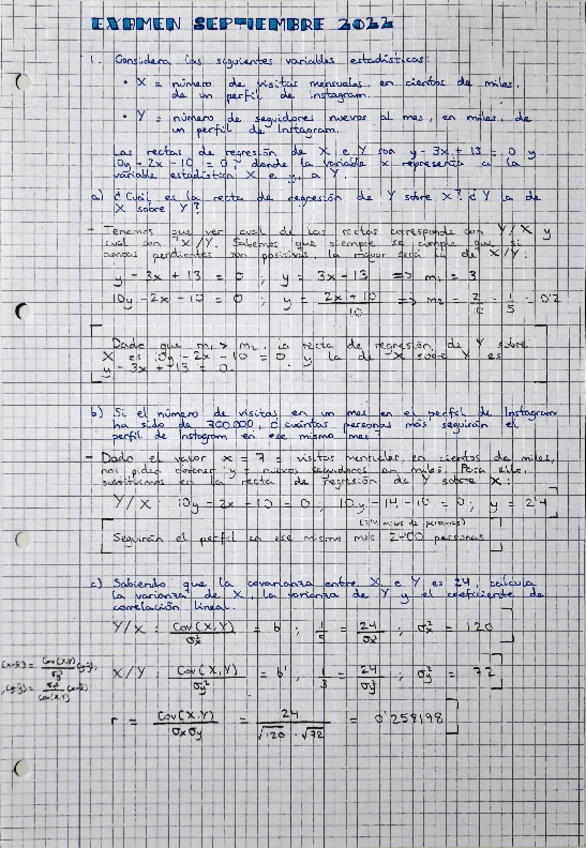 EXAMEN SEPTIEMBRE 2022
1. Considera las siguientes variables estadísticas:
• X = número de visitas mensuales, en cientos de miles,
de un perfil de instagram.
• Y = número de seguidores nuevos al mes, en miles, de
un perfil de Instagram.
Las rectas de regresión de X e Y son y - 3x + 13 = 0 y
10y - 2x - 10 = 0, donde la variable x representa a la
variable estadística X e y, a Y.
a) ¿Cuál es la recta de regresión de Y sobre X? ¿Y la de
X sobre Y?
- Tenemos que ver cual de las rectas corresponde con Y/X y
cual con X/Y. Sabemos que siempre se cumple que, si
ambas pendientes son positivas, la mayor será la de X/Y:
y - 3x + 13 = 0 ; y = 3x - 13 => m₁ = 3
10y - 2x - 10 = 0 ; y = (2x + 10)/10 => m₂ = = 1/5 = 0'2
Dado que m₁ > m₂, la recta de regresión de Y sobre
X es 10y - 2x - 10 = 0 y la de X sobre Y es
y - 3x + 13 = 0.
b) Si el número de visitas en un mes en el perfil de Instagram
ha sido de 700.000, ¿cuántas personas más seguirán el
perfil de Instagram en ese mismo mes?
- Dado el valor x = 7 = visitas mensuales, en cientos de miles,
nos piden obtener y = nuevos seguidores en miles. Para ello,
sustituimos en la recta de regresión de Y sobre X:
Y/X : 10y - 2x - 10 = 0 ; 10y - 14 - 10 = 0 ; y = 2'4
(2'4 miles de personas)
Seguirán el perfil en ese mismo mes 2400 personas
c) Sabiendo que la covarianza entre X e Y es 24, calcula
la varianza de X, la varianza de Y y el coeficiente de
correlación lineal.
Y/X : Cov(X,Y)/σx² = b ; 1/5 = 24/σx² ; σx² = 120
(x-x̄) = Cov(X,Y)/σy² (y-ȳ);
X/Y : Cov(X,Y)/σy² = b' ; 1/3 = 24/σy² ; σy² = 72
(y-ȳ) = σy²/Cov(X,Y) (x-x̄)
r = Cov(X,Y)/σxσy = 24/√120 · √72 = 0'258198